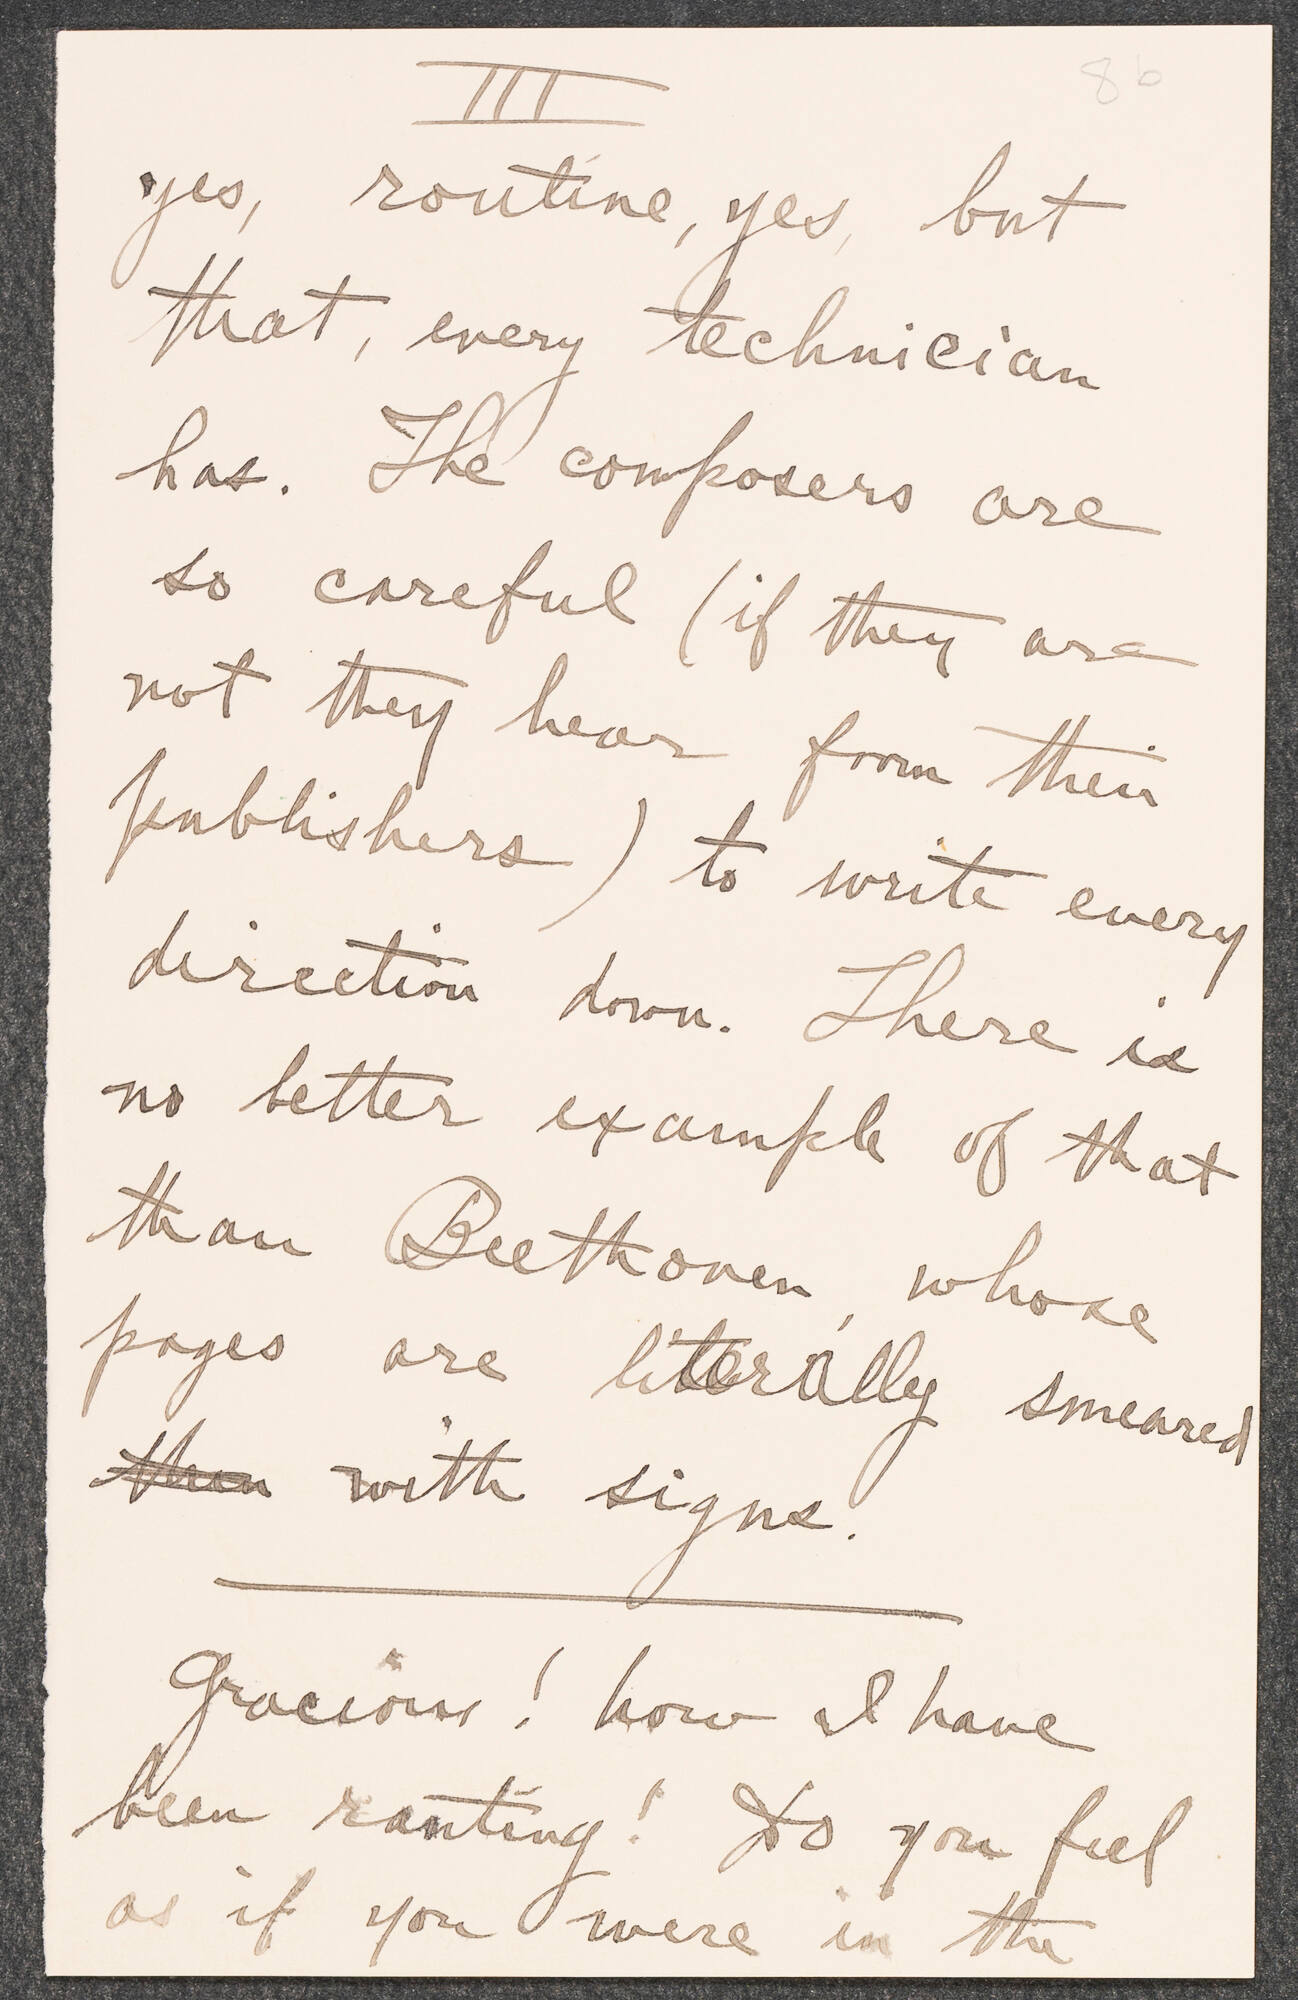 III
8b
yes, routine, yes, but
that, every technician
has. The composers are
so careful (if they are
not they hear from their
publishers) to write every
direction down. There is
no better example of that
than Beethoven, whose
pages are literally smeared
then with signs.
Gracious! how I have
been ranting! Do you feel
as if you were in the